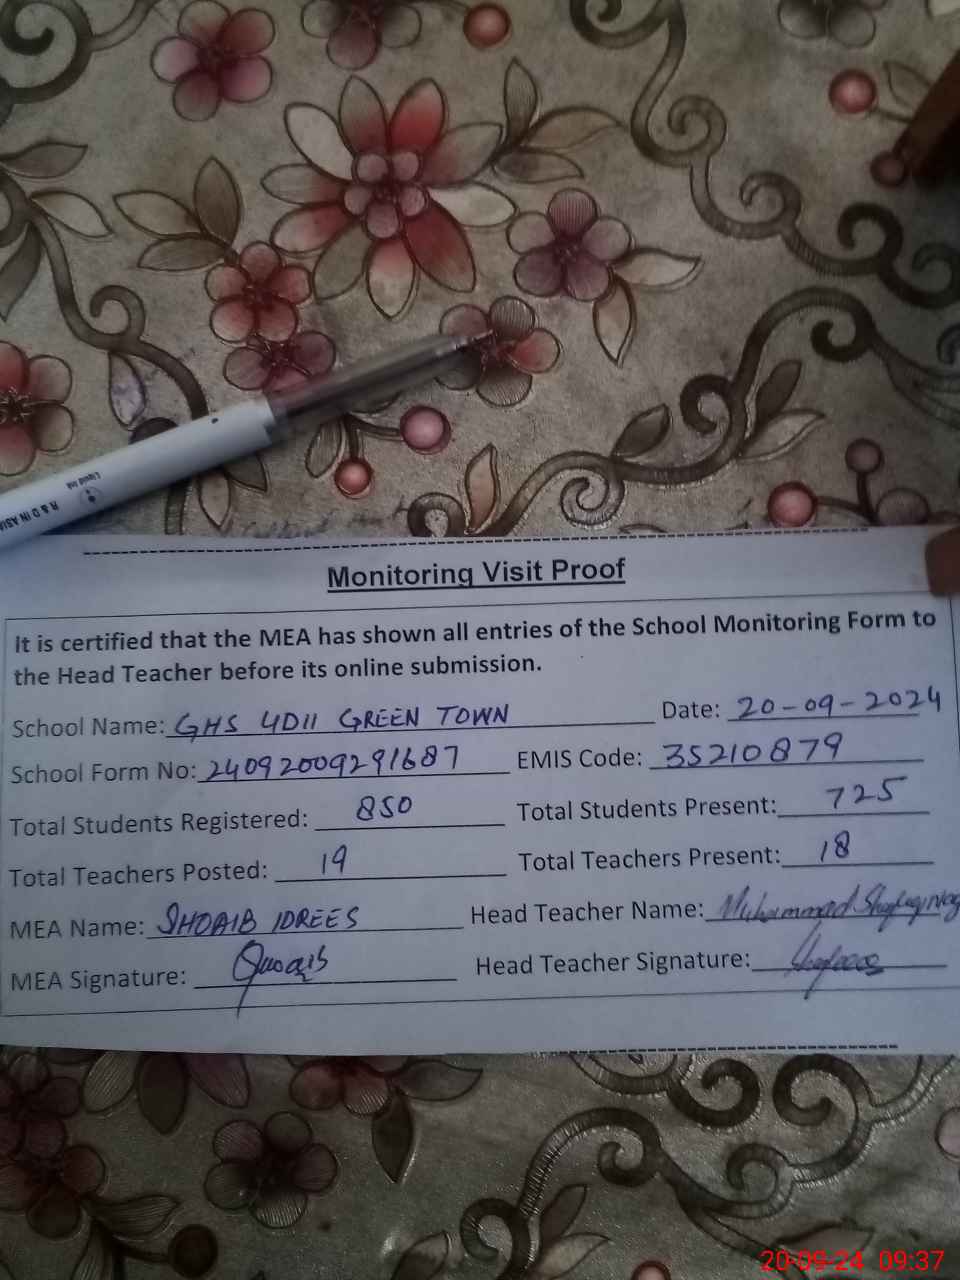 Liquid Ink
R & D IN ASIA
Monitoring Visit Proof
It is certified that the MEA has shown all entries of the School Monitoring Form to
the Head Teacher before its online submission.
School Name: GHS 4D11 GREEN TOWN Date: 20-09-2024
School Form No: 24092009291687 EMIS Code: 35210879
Total Students Registered: 850 Total Students Present: 725
Total Teachers Posted: 19 Total Teachers Present: 18
MEA Name: SHOAIB IDREES Head Teacher Name: Muhammad
MEA Signature: Shoaib Head Teacher Signature:
20-09-24 09:37